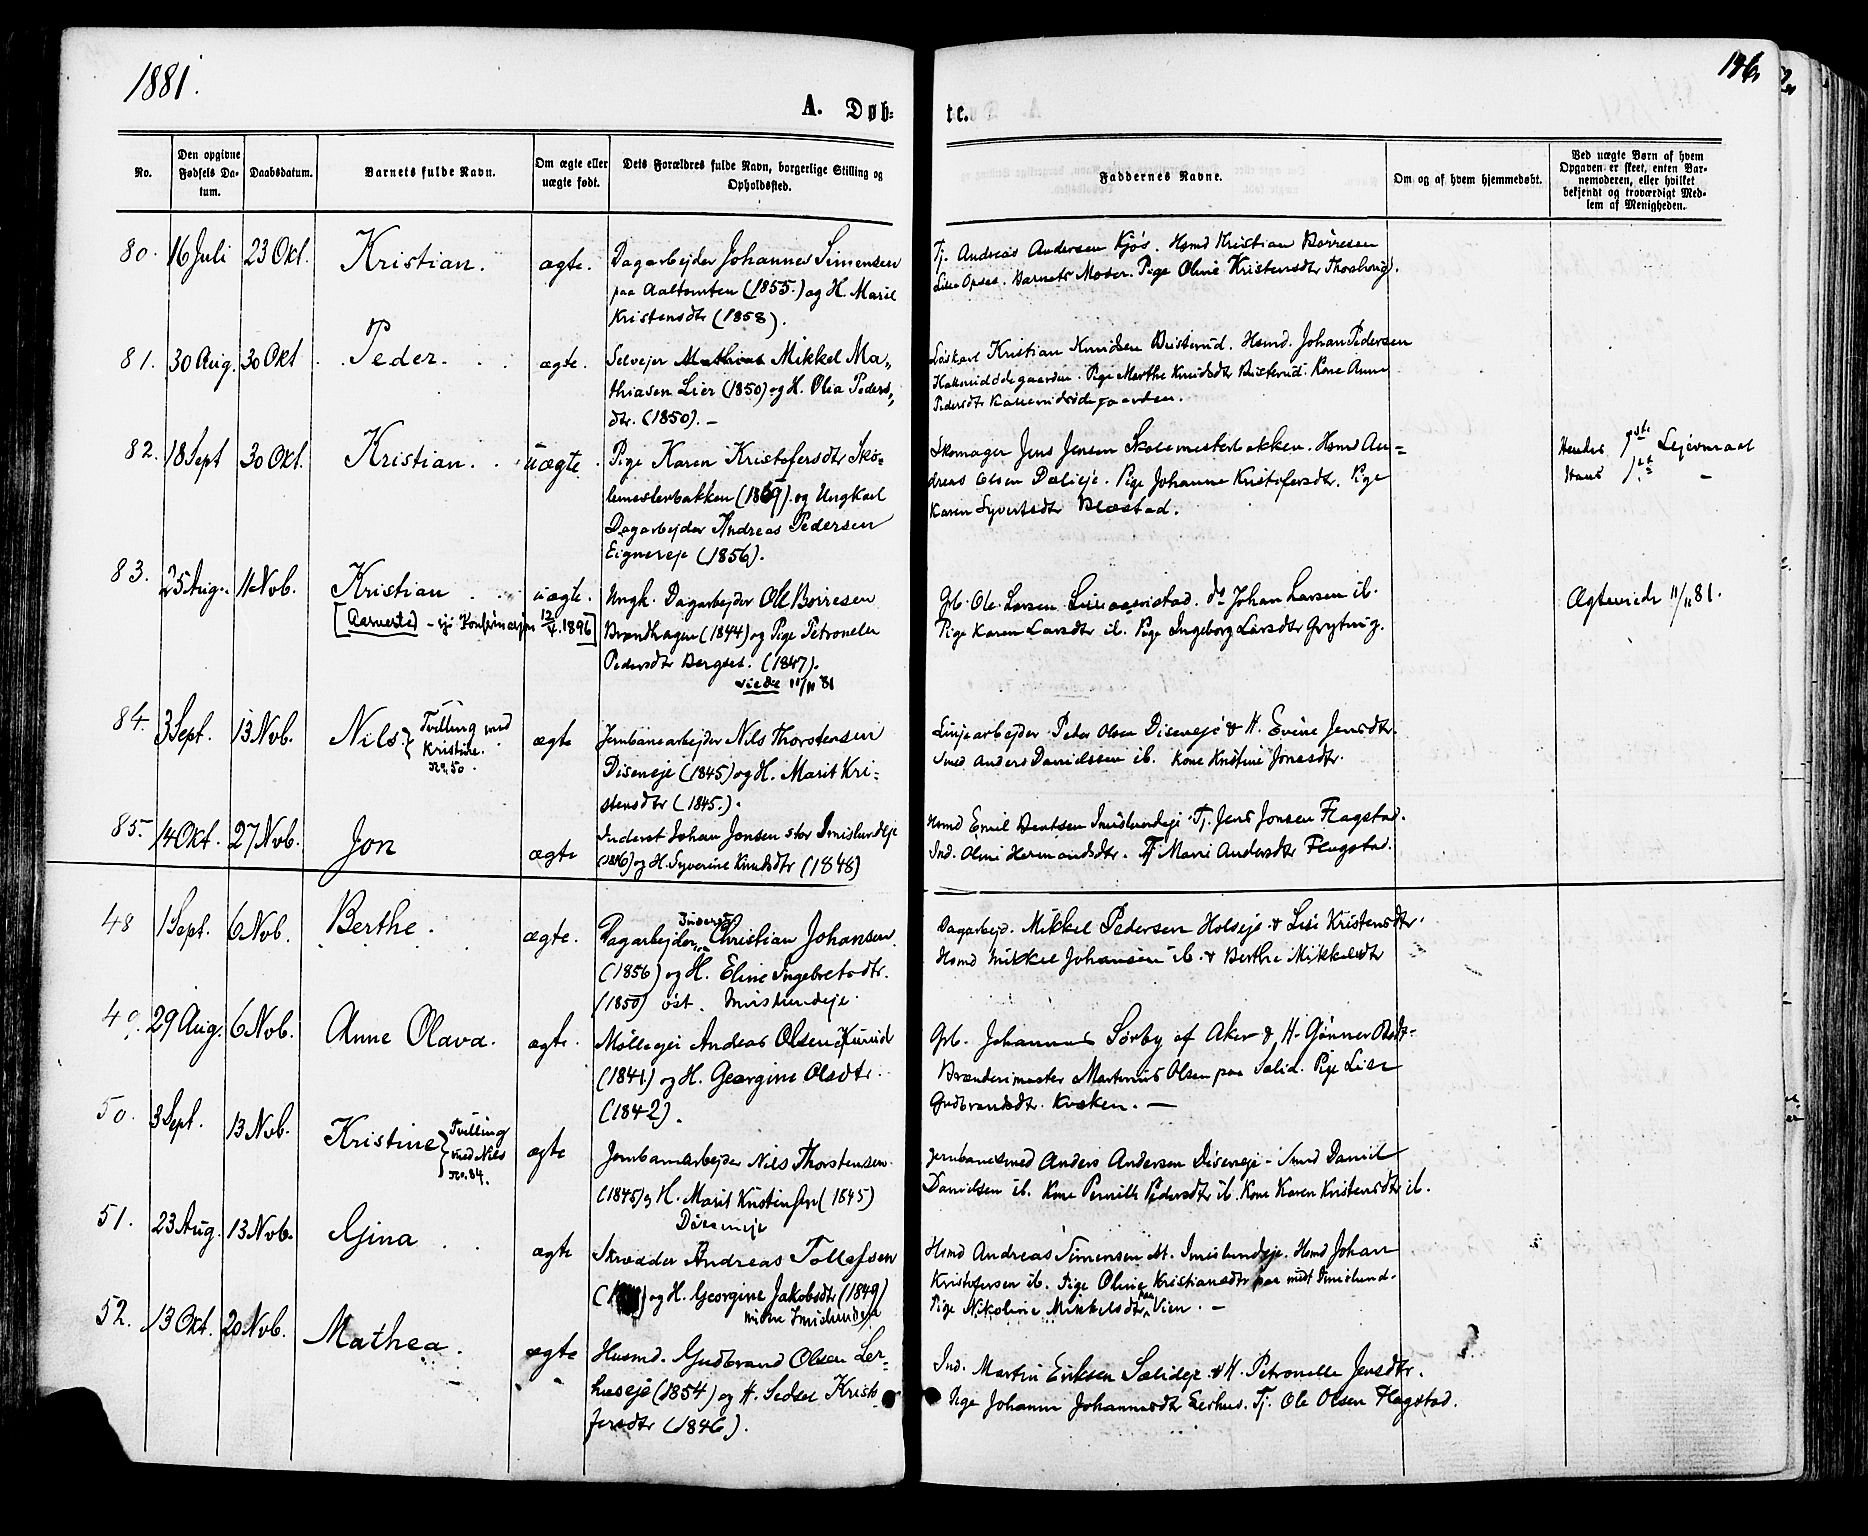 1881.
146
A. Døb-
te.
No.
Den opgivne Fødsels Datum.
Daabsdatum.
Barnets fulde Navn.
Om ægte eller uægte født.
Dets Forældres fulde Navn, borgerlige Stilling og Opholdssted.
Faddernes Navne.
Om og af hvem hjemmedøbt.
Ved uægte Børn af hvem Opgaven er skeet, enten Barnemoderen, eller hvilket bekjendt og troværdigt Medlem af Menigheden.
80. 16 Juli 23 Okt. Kristian. ægte.
Dagarbejder Johannes Simensen
paa Aaltomten (1855.) og H. Marie
Kristensdtr (1858).
Tj. Andreas Andersen Kjós. Hsmd Kristian Børresen
Lille Opsas. Barnets Moder. Pige Oline Kristensdtr
81. 30 Aug. 30 Okt Peder. ægte.
Selvejer Mathias Mikkel Ma„
thiasen Lier (1850) og H. Olia Peders„
dtr. (1850). –
Løskarl Kristian Knudsen Bisterud. Hsmd. Johan Pedersen
Pige Marthe Knudsdtr Bisterud. Kone Anne
Pedersdtr
82. 18 Sept 30 Okt. Kristian. uægte.
Pige Karen Kristofersdtr Sko-
lemesterbakken (1869) og Ungkarl
Dagarbejder Andreas Pedersen
Eignereje (1856).
Skomager Jens Jensen Skolemesterbakken. Hsmd An=
dreas Olsen Dælieje. Pige Johanne Kristofersdtr. Pige
Karen Syvertsdtr Blæstad.
Hendes 1ste Lejermaal
Hans 1ste –
83. 25 Aug. 11 Nob. Kristian uægte.
[Aarnerte – Konfirmasjon 12/4. 1896]
Ungk. Dagarbejder Ole Børresen
Brændhagen (1844) og Pige Petronelle
Pedersdtr Bergset. (1847).
viede 11/11 81
Gb. Ole Larsen. do Johan Larsen ib.
Pige Karen Larsdtr ib. Pige Ingeborg Larsdtr Gryting.
Ægteviede 11/11 81.
84. 3 Sept. 13 Nob. Nils { Tvilling med ægte
Kristine.
No. 50.
Jernbanearbejder Nils Thorstensen
Diseneje (1845) og H. Marit Kri-
stensdtr (1845.).
Linjearbejder Peder Olsen Diseneje & H. Evine Jensdtr.
Smed Anders Danielssen ib. Kone Kristine Jonsdtr.
85. 14 Okt. 27 Nob. Jon ægte
Inderst Johan Jonsen stor Imislundeje
(1846) og H. Syverine Knudsdtr (1848)
Hsmd Emil Bentsen Imislundeje. Tj. Jens Jonsen Flagstad.
Ind. Oline Hermansdtr. Tj Marie Andersdtr Flagstad.
48 1 Sept. 6 Nob. Berthe. ægte.
Inderst
Dagarbejder Christian Johansen
(1856) og H. Eline Ingebretsdtr.
(1850) øst. Imislundeje.
Dagarbejd. Mikkel Pedersen Holseje & Lise Kristensdtr.
Hsmd Mikkel Johansen ib. & Berthe Mikkelsdtr
49. 29 Aug. 6 Nob. Anne Olava. ægte.
Mølleejer Andreas Olsen Kurud
(1841) og H. Georgine Olsdtr.
(1842).
Gb. Johannes Sørby af Aker & H. Gønner
Brænderimester Martinius Olsen paa Sælid. Pige Lise
Gudbrandsdtr. Kvæken. –
50. 3 Sept. 13 Nob. Kristine { Tvilling ægte
med Nils
No. 84.
Jernbanearbejder Nils Thorstensen
(1845) og H. Marit Kristensdtr (1845)
Diseneje
Jernbanesmed Anders Andersen Diseneje – Smed Daniel
Danielsen ib. Kone Pernille Pedersdtr ib. Kone Karen Kristensdtr ib.
51. 23 Aug. 13 Nob. Gina ægte
Skrædder Andreas Tollefsen
og H. Georgine Jakobsdtr (1849)
midtre Imislundeje
Hsmd Andreas Simensen st. Imislundeje. Hsmd Johan
Kristofersen ib. Pige Oline Kristiansdtr paa midt Imislund.
Pige Nikoline Mikkelsdtr paa Vien. –
52. 13 Okt. 20 Nob. Mathea. ægte
Husmd. Gudbrand Olsen Ler-
huseje (1854) og H. Sedsel Kristo
fersdtr (1846).
Ind. Martin Eriksen Sælideje & H. Petronelle Jensdtr.
Pige Johanne Johannesdtr Lerhus. Tj. Ole Olsen Flagstad.